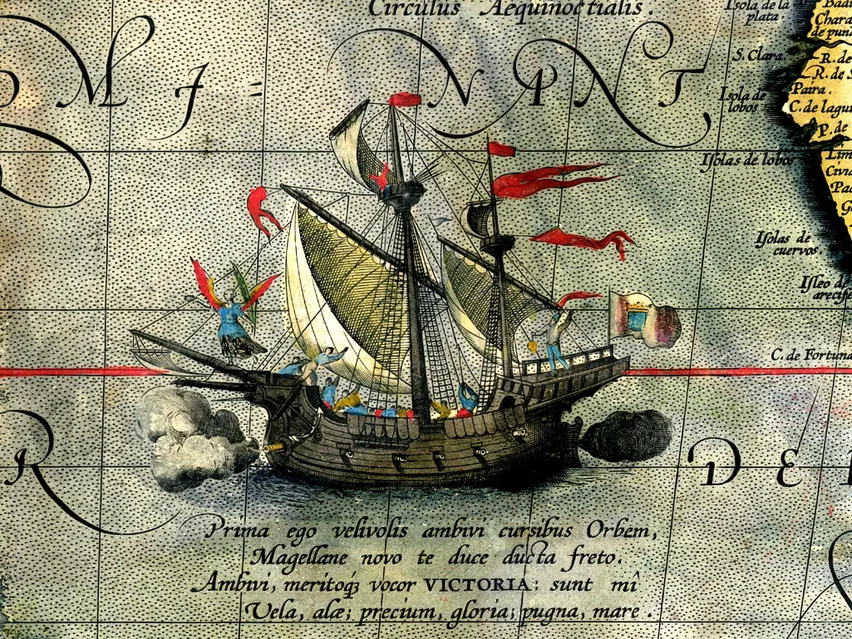 Circulus Aequinoctialis.
Isola de la
plata.
Chara
de puna
S. Clara.
R. de
R. de S
Paita.
Isola de
lobos
C. de lagu
P. de
M I = N P N T
Isolas de lobos
Lim
Civid
Pa
Isolas de
cuervos
Isleo de
arecife
C. de Fortuna
R D E L
Prima ego velivolis ambivi cursibus Orbem,
Magellane novo te duce ducta freto.
Ambivi, meritoqȝ vocor VICTORIA: sunt mî
Vela, alæ; precium, gloria; pugna, mare.